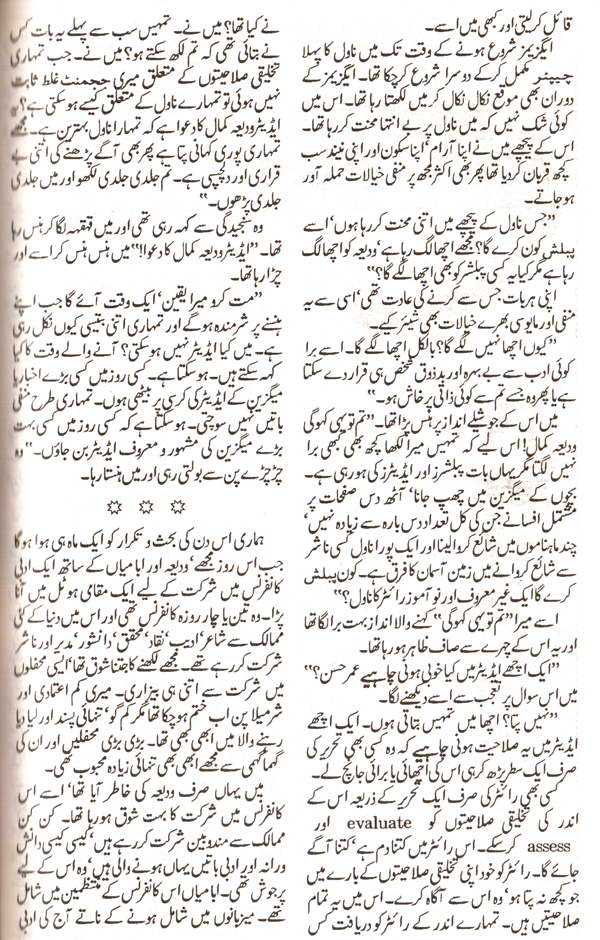 قائل کرلیتی اور کبھی میں اسے۔
ایگزیمز شروع ہونے کے وقت تک میں ناول کا پہلا
چیپٹر مکمل کرکے دوسرا شروع کرچکا تھا۔ ایگزیمز کے
دوران بھی موقع نکال نکال کر میں لکھتا رہا تھا۔ اس میں
کوئی شک نہیں کہ میں ناول پر بے انتہا محنت کررہا تھا۔
اس کے پیچھے میں نے اپنا آرام‘ اپنا سکون اور اپنی نیند سب
کچھ قربان کردیا تھا پھر بھی اکثر مجھ پر منفی خیالات حملہ آور
ہوجاتے۔
”جس ناول کے پیچھے میں اتنی محنت کررہا ہوں‘ اسے
پبلش کون کرے گا؟ مجھے اچھا لگ رہا ہے‘ ودیعہ کو اچھا لگ
رہا ہے مگر کیا یہ کسی پبلشر کو بھی اچھا لگے گا؟“
اپنی ہر بات جس سے کرنے کی عادت تھی‘ اسی سے یہ
منفی اور مایوسی بھرے خیالات بھی شیئر کیے۔
”کیوں اچھا نہیں لگے گا؟ بالکل اچھا لگے گا۔ اسے برا
کوئی ادب سے بے بہرہ اور بدذوق شخص ہی قرار دے سکتا
ہے یا پھر وہ جسے تم سے کوئی ذاتی پرخاش ہو۔“
میں اس کے جوشیلے انداز پر ہنس پڑا تھا۔ ”تم تو یہی کہوگی
ودیعہ کمال! اس لیے کہ تمہیں میرا لکھا کچھ بھی کبھی برا
نہیں لگتا مگر یہاں بات پبلشرز اور ایڈیٹرز کی ہورہی ہے۔
بچوں کے میگزین میں چھپ جانا‘ آٹھ دس صفحات پر
مشتمل افسانے جن کی کل تعداد دس بارہ سے زیادہ نہیں‘
چند ماہناموں میں شائع کروالینا اور ایک پورا ناول کسی ناشر
سے شائع کروانے میں زمین آسمان کا فرق ہے۔ کون پبلش
کرے گا ایک غیر معروف اور نوآموز رائٹر کا ناول؟“
اسے میرا ”تم تو یہی کہوگی“ کہنے والا انداز بہت برا لگا تھا
اور یہ اس کے چہرے سے صاف ظاہر ہورہا تھا۔
”ایک اچھے ایڈیٹر میں کیا خوبی ہونی چاہیے عمر حسن؟“
میں اس سوال پر تعجب سے اسے دیکھنے لگا۔
”نہیں پتا؟ اچھا میں تمہیں بتاتی ہوں۔ ایک اچھے
ایڈیٹر میں یہ صلاحیت ہونی چاہیے کہ وہ کسی بھی تحریر کی
صرف ایک سطر پڑھ کر ہی اس کی اچھائی یا برائی جانچ لے۔
کسی بھی رائٹر کی صرف ایک تحریر کے ذریعہ اس کے
اندر کی تخلیقی صلاحیتوں کو evaluate اور
assess کرسکے۔ اس رائٹر میں کتنا دم ہے‘ کتنا آگے
جائے گا۔ رائٹر کو خود اپنی تخلیقی صلاحیتوں کے بارے میں
جو کچھ نہ پتا ہو‘ وہ اس سے آگاہ کرے۔ اس میں یہ تمام
صلاحیتیں ہیں۔ تمہارے اندر کے رائٹر کو دریافت کس
نے کیا تھا؟ میں نے۔ تمہیں سب سے پہلے یہ بات کس
نے بتائی تھی کہ تم لکھ سکتے ہو؟ میں نے۔ جب تمہاری
تخلیقی صلاحیتوں کے متعلق میری ججمنٹ غلط ثابت
نہیں ہوئی تو تمہارے ناول کے متعلق کیسے ہوسکتی ہے؟ یہ
ایڈیٹر ودیعہ کمال کا دعوا ہے کہ تمہارا ناول بہترین ہے۔ مجھے
تمہاری پوری کہانی پتا ہے پھر بھی آگے پڑھنے کی اتنی بے
قراری اور دلچسپی ہے۔ تم جلدی جلدی لکھو اور میں جلدی
جلدی پڑھوں۔“
وہ سنجیدگی سے کہہ رہی تھی اور میں قہقہہ لگا کر ہنس رہا
تھا۔ ”ایڈیٹر ودیعہ کمال کا دعوا!“ میں ہنس ہنس کر اسے اور
چڑا رہا تھا۔
”مت کرو میرا یقین‘ ایک وقت آئے گا جب اپنے
ہنسنے پر شرمندہ ہوگے اور تمہاری اتنی بتیسی کیوں نکل رہی
ہے۔ میں کیا ایڈیٹر نہیں ہوسکتی؟ آنے والے وقت کا کیا
کہہ سکتے ہیں۔ ہوسکتا ہے۔ کسی روز میں کسی بڑے اخبار یا
میگزین کے ایڈیٹر کی کرسی پر بیٹھی ہوں۔ تمہاری طرح منفی
باتیں نہیں سوچتی۔ ہوسکتا ہے کہ کسی روز میں کسی بہت
بڑے میگزین کی مشہور و معروف ایڈیٹر بن جاؤں۔“ وہ
چڑچڑے پن سے بولتی رہی اور میں ہنستا رہا۔
☼ ☼ ☼
ہماری اس دن کی بحث و تکرار کو ایک ماہ ہی ہوا ہوگا
جب اس روز مجھے‘ ودیعہ اور ابا میاں کے ساتھ ایک ادبی
کانفرنس میں شرکت کے لیے ایک مقامی ہوٹل میں آنا
پڑا۔ وہ تین یا چار روزہ کانفرنس تھی اور اس میں دنیا کے کئی
ممالک سے شاعر‘ ادیب‘ نقاد‘ محقق‘ دانشور‘ مدیر اور ناشر
شرکت کررہے تھے۔ مجھے لکھنے کا جتنا شوق تھا‘ ایسی محفلوں
میں شرکت سے اتنی ہی بیزاری۔ میری کم اعتمادی اور
شرمیلا پن اب ختم ہوچکا تھا مگر کم گو‘ تنہائی پسند اور لیا دیا
رہنے والا میں ابھی بھی تھا۔ بڑی بڑی محفلیں اور ان کی
گہماگہمی سے مجھے ابھی بھی تنہائی زیادہ محبوب تھی۔
میں یہاں صرف ودیعہ کی خاطر آیا تھا‘ اسے اس
کانفرنس میں شرکت کا بہت شوق ہورہا تھا۔ کن کن
ممالک سے مندوبین شرکت کررہے ہیں‘ کیسی کیسی دانش
ورانہ اور ادبی باتیں یہاں ہونے والی ہیں‘ وہ اس کے لیے
پرجوش تھی۔ ابا میاں اس کانفرنس کے منتظمین میں شامل
تھے۔ میزبانوں میں شامل ہونے کے ناتے آج کی ادبی